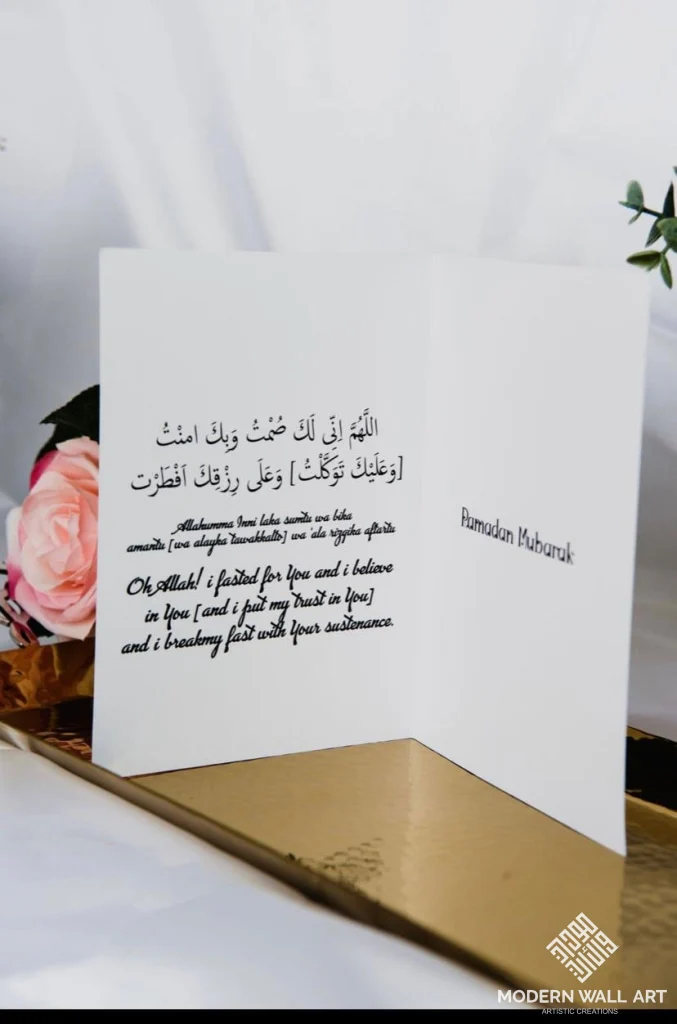 اللَّهُمَّ اِنِّى لَكَ صُمْتُ وَبِكَ امنْتُ
[وَعَلَيْكَ تَوَكَّلْتُ] وَعَلَى رِزْقِكَ اَفْطَرْت
Allahumma Inni laka sumtu wa bika
amantu [wa alayka tawakkaltu] wa 'ala rizqika aftartu
Oh Allah! i fasted for You and i believe
in You [and i put my trust in You]
and i breakmy fast with Your sustenance.
Ramadan Mubarak
MODERN WALL ART
ARTISTIC CREATIONS